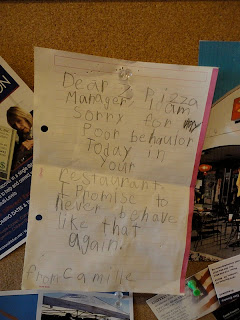 Dear Pizza
Manager, I am
Sorry for my
Poor behavior
Today in
Your
restaurant.
I Promise to
never behave
like that
again.
From Camille